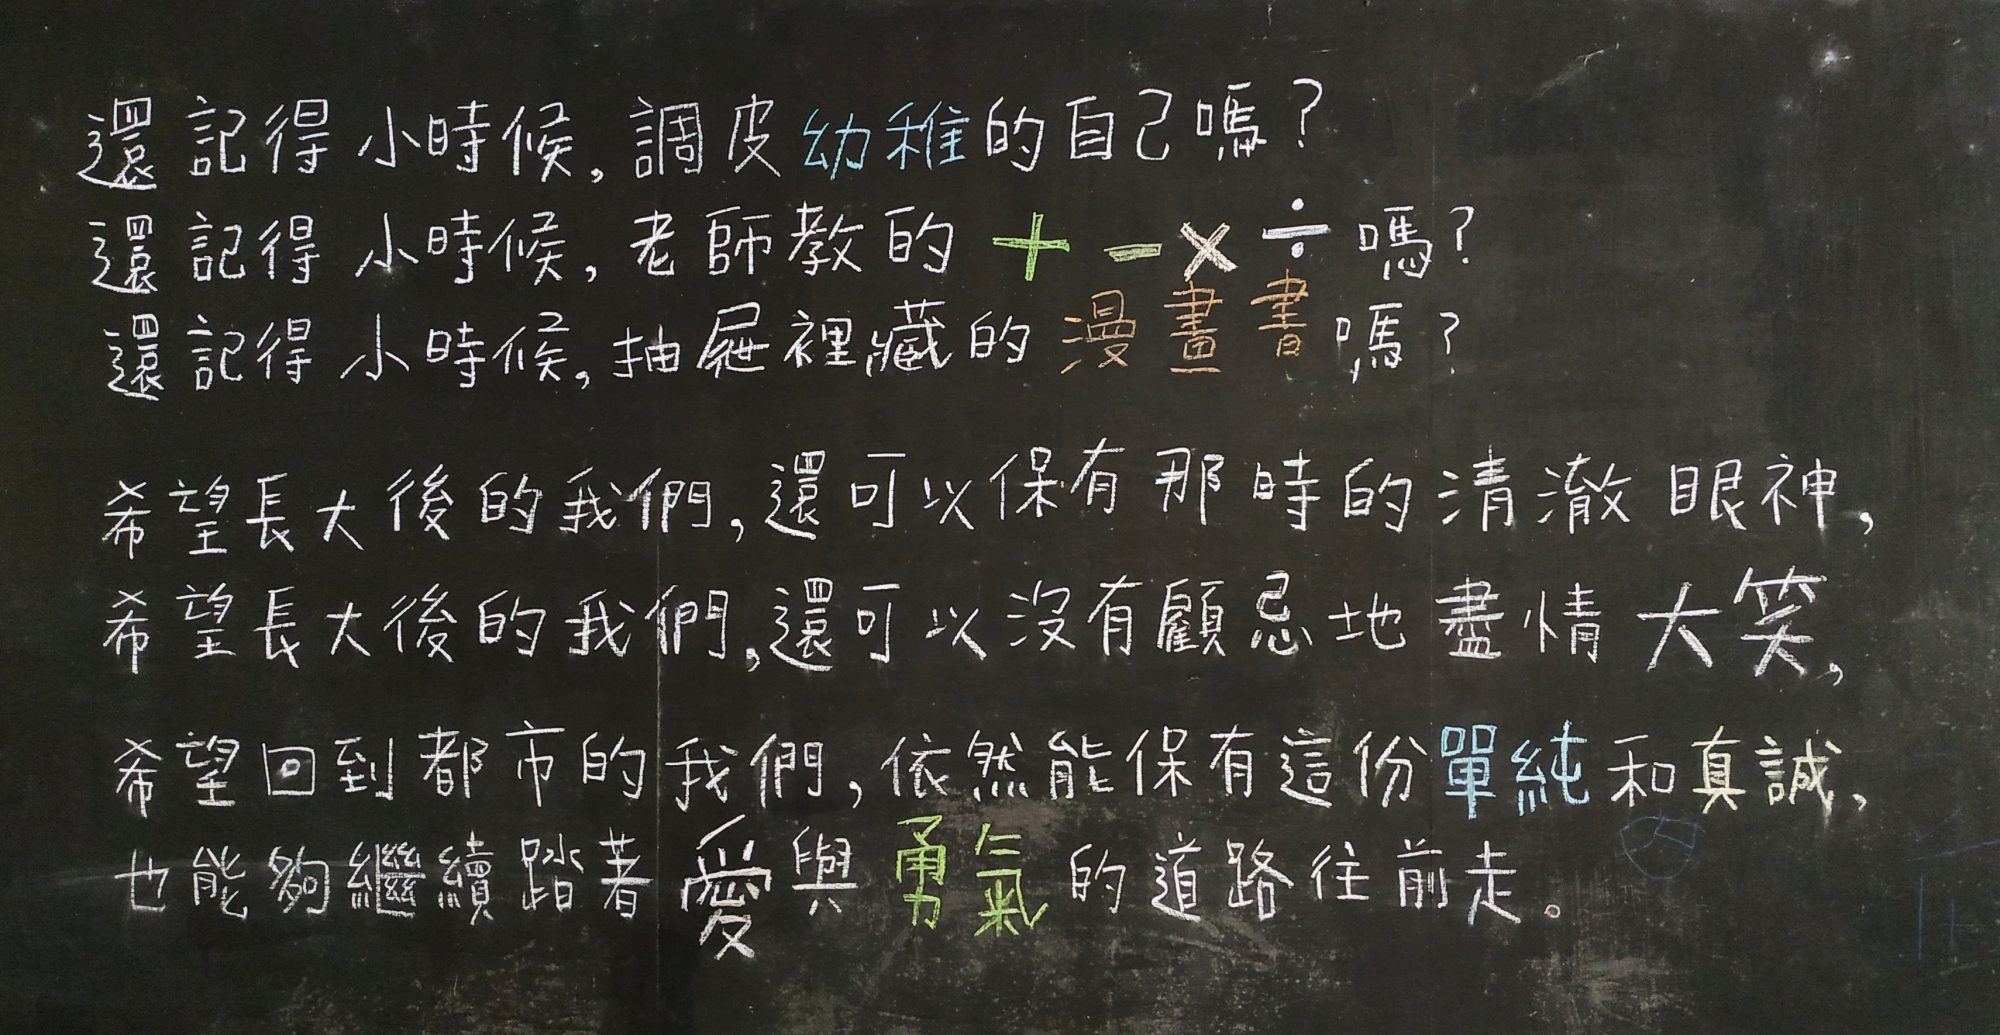 還記得小時候,調皮幼稚的自己嗎?
還記得小時候,老師教的+-×÷嗎?
還記得小時候,抽屜裡藏的漫畫書嗎?
希望長大後的我們,還可以保有那時的清澈眼神,
希望長大後的我們,還可以沒有顧忌地盡情大笑,
希望回到都市的我們,依然能保有這份單純和真誠,
也能夠繼續踏著愛與勇氣的道路往前走。